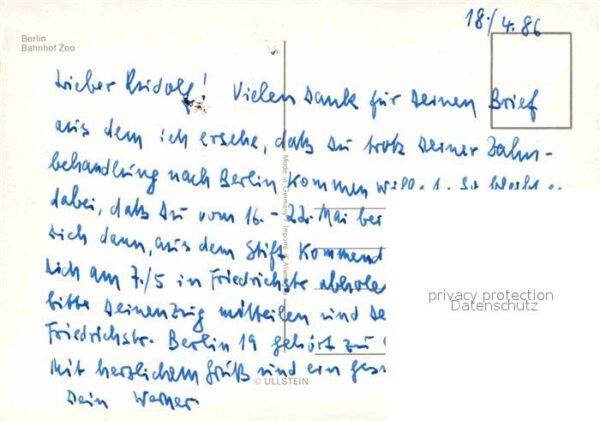 18./4.86
Berlin
Bahnhof Zoo
Lieber Rudolf! Vielen Dank für Deinen Brief
aus dem ich ersehe, daß Du trotz Deiner Zahn-
behandlung nach Berlin kommen willst. Es bleibt
dabei, daß Du vom 16. - 22. Mai
Dich dann, aus dem Stift
Dich am 7./5 in Friedrichstr.
bitte Deinen Zug mitteilen und
Friedrichstr. Berlin 19 gehört zu
Mit herzlichem Gruß und ein
Dein Werner
Made in Germany
© ULLSTEIN
privacy protection
Datenschutz